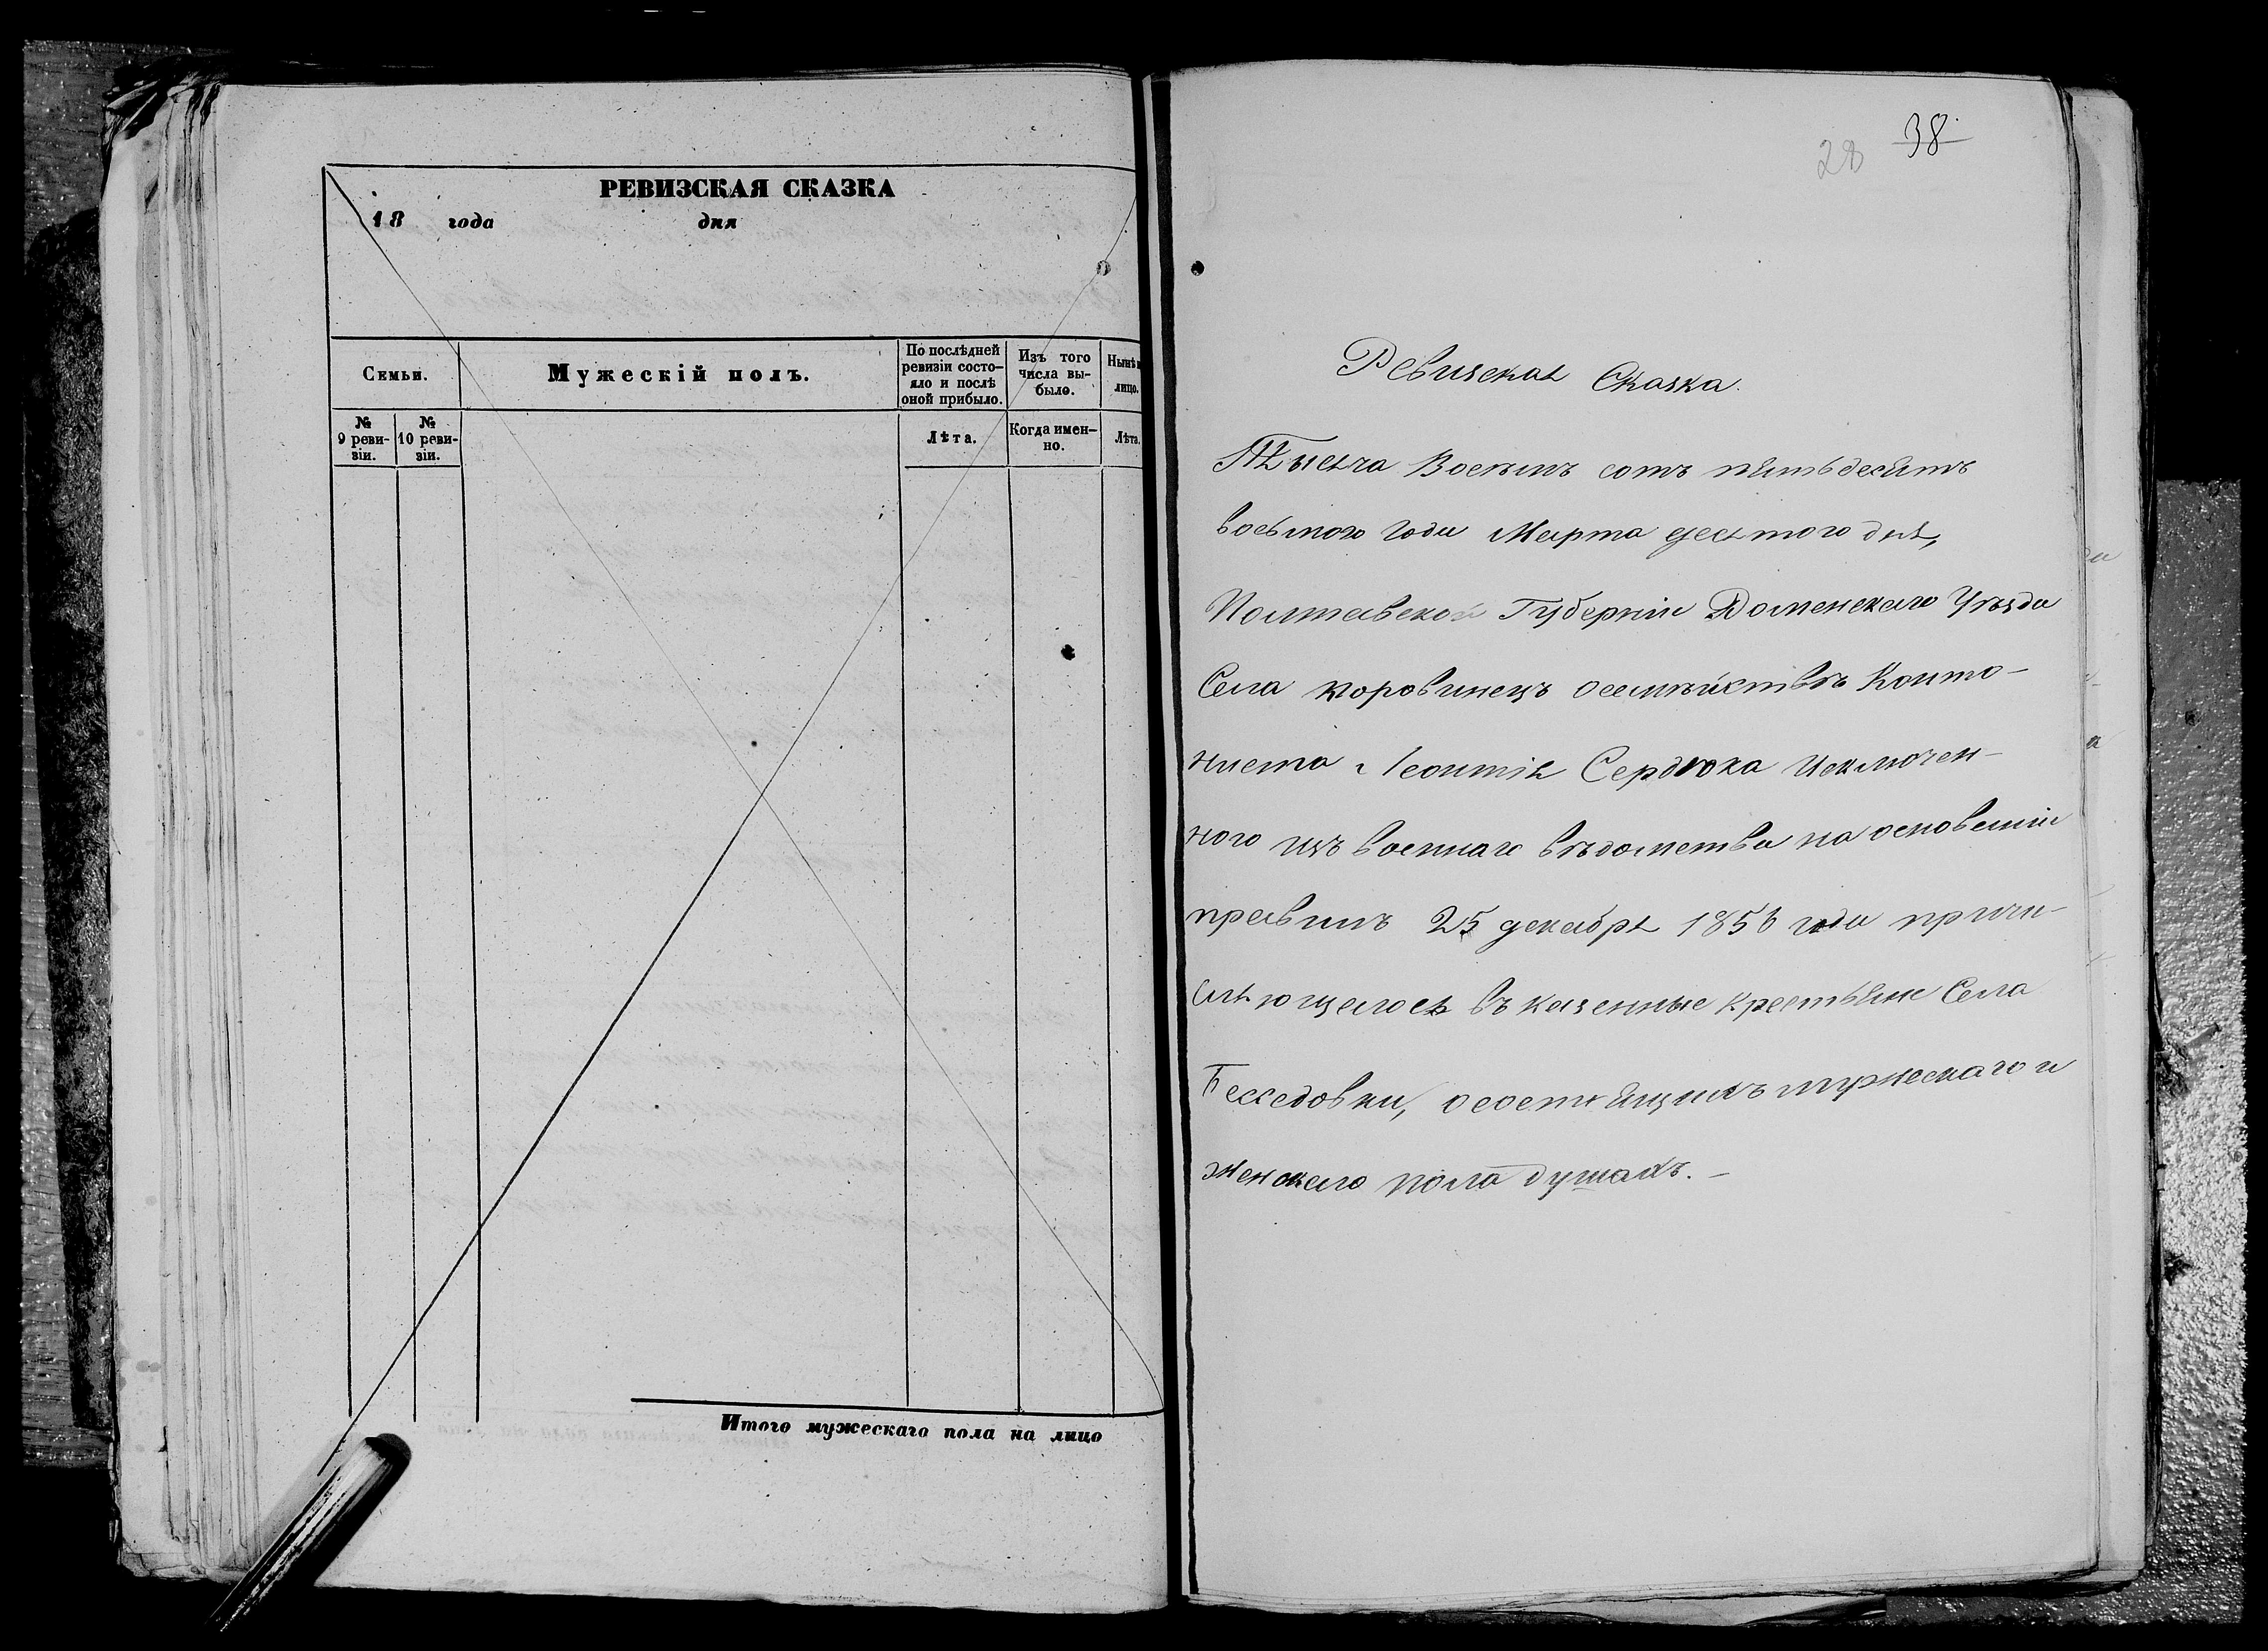 РЕВИЗСКАЯ СКАЗКА
18 года дня
Семьи.
Мужескій полъ.
По послѣдней
ревизіи состо-
яло и послѣ
оной прибыло.
Изъ того
числа вы-
было.
Нынѣ
лицо.
№
9 реви-
зіи.
№
10 реви-
зіи.
Лѣта.
Когда имен-
но.
Лѣта.
Итого мужескаго пола на лицо
28 38
Ревизская Сказка.
Тысяча Восемь сотъ пятьдесятъ
восьмого года Марта десятого дня,
Полтавской Губерніи Роменскаго Уѣзда
Села Коровинецъ осемѣйствѣ Конто-
ниста Леонтія Сердюка Исключен-
ного изъ военнаго вѣдомства на основаніи
правилъ 25 декабря 1856 года причи-
сляющагося въ казенные крестьяне Села
Бесседовки, осостоящихъ мужескаго и
женскаго пола душахъ. —